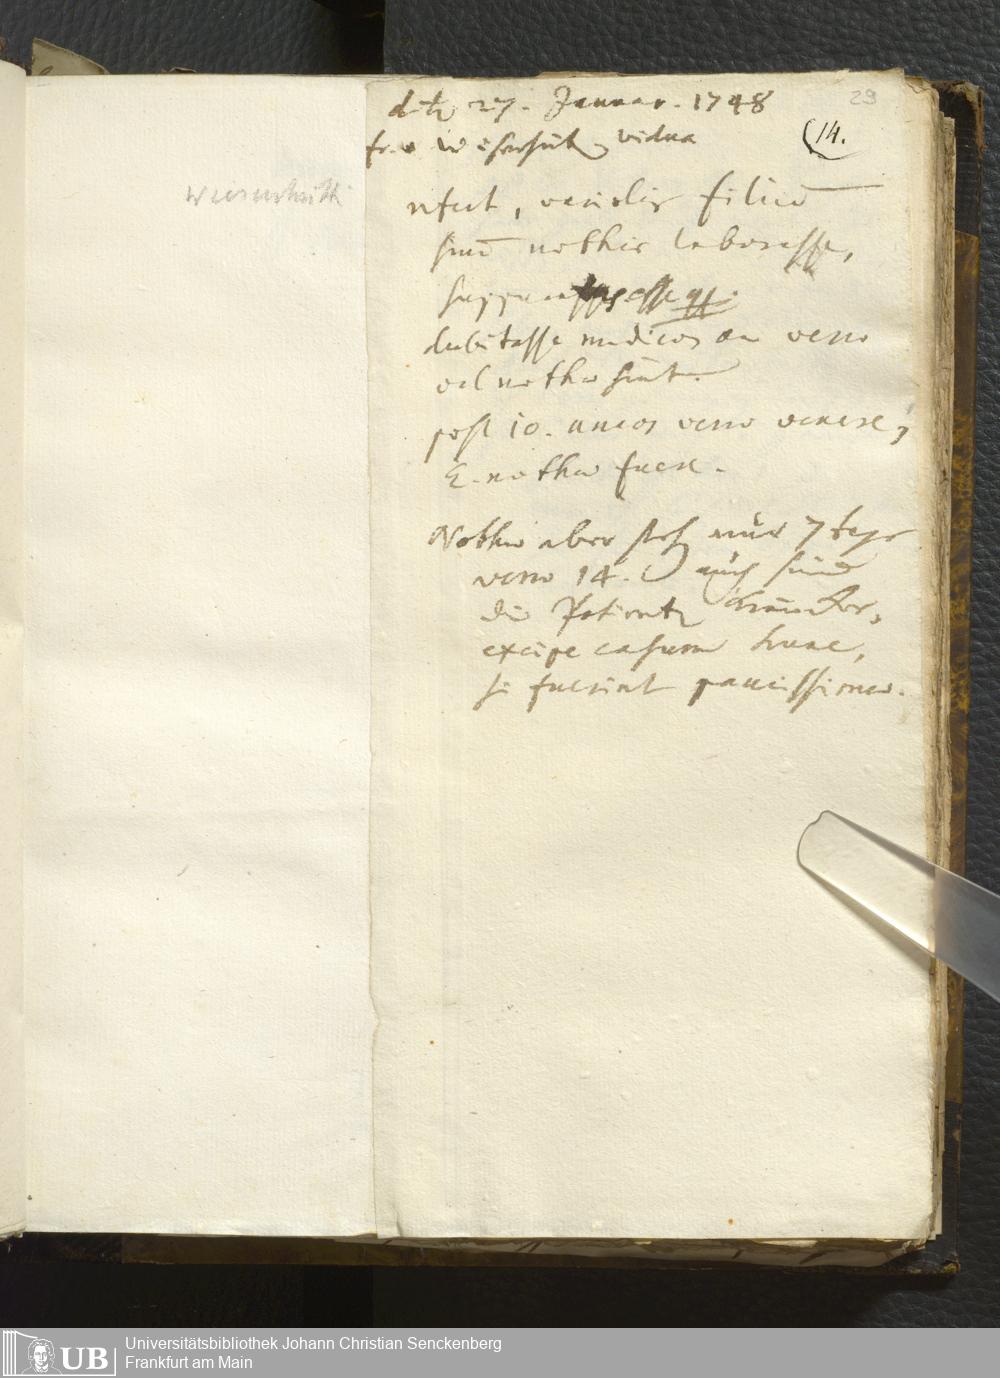 29
(14.
27. Januar. 1748
vidua
refert, variolis filium
suum nothis laborasse,
esse
dubitasse medicos an verae
vel nothae sint.
post 10. annos verae venere,
E. nothae fuere.
Nothae aber steh nur 7 tage
verae 14. auch sind
die Patienten kräncker,
excipe casum hunc,
si fuerint paucissimae.
UB
Universitätsbibliothek Johann Christian Senckenberg
Frankfurt am Main